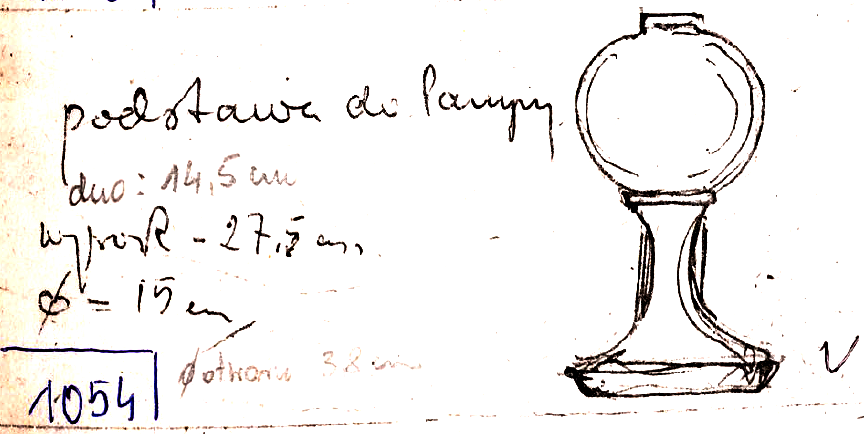 podstawa do lampy
dno: 14,5 cm
wysok - 27,5 cm
ϕ = 15 cm
ϕ otworu 38 cm
1054
V